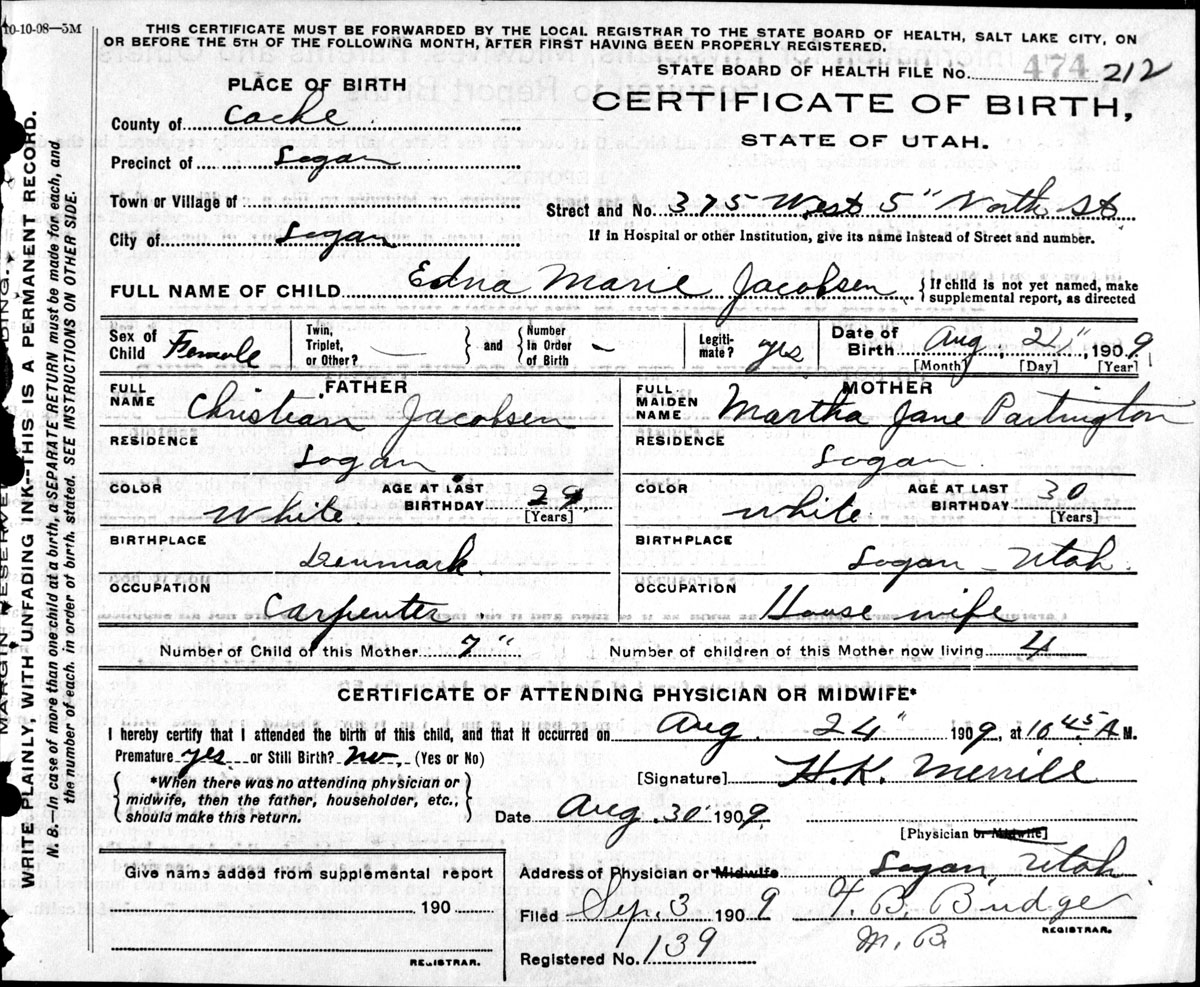 10-10-08—5M
THIS CERTIFICATE MUST BE FORWARDED BY THE LOCAL REGISTRAR TO THE STATE BOARD OF HEALTH, SALT LAKE CITY, ON
OR BEFORE THE 5TH OF THE FOLLOWING MONTH, AFTER FIRST HAVING BEEN PROPERLY REGISTERED.
STATE BOARD OF HEALTH FILE No. 474 212
PLACE OF BIRTH
CERTIFICATE OF BIRTH,
STATE OF UTAH.
County of Cache
Precinct of Logan
Town or Village of
Street and No. 375 West 5" North St
City of Logan
If in Hospital or other Institution, give its name instead of Street and number.
FULL NAME OF CHILD Edna Marie Jacobsen { If child is not yet named, make supplemental report, as directed
Sex of Child Female Twin, Triplet, or Other? — } and { Number in Order of Birth — Legitimate? yes Date of Birth Aug, 24", 1909
[Month] [Day] [Year]
FATHER
FULL NAME Christian Jacobsen
RESIDENCE Logan
COLOR White AGE AT LAST BIRTHDAY 29 [Years]
BIRTHPLACE Denmark
OCCUPATION Carpenter
MOTHER
FULL MAIDEN NAME Martha Jane Partington
RESIDENCE Logan
COLOR White AGE AT LAST BIRTHDAY 30 [Years]
BIRTHPLACE Logan Utah
OCCUPATION House wife
Number of Child of this Mother 7" Number of children of this Mother now living 4
CERTIFICATE OF ATTENDING PHYSICIAN OR MIDWIFE*
I hereby certify that I attended the birth of this child, and that it occurred on Aug. 24" 1909, at 10 45 A M.
Premature yes or Still Birth? no, (Yes or No)
{ *When there was no attending physician or midwife, then the father, householder, etc., should make this return. }
[Signature] H.K. Merrill
Date Aug. 30" 1909.
[Physician or Midwife]
Give name added from supplemental report
190
REGISTRAR.
Address of Physician or Midwife Logan, Utah
Filed Sep. 3 1909 T. B. Budge
REGISTRAR.
M. B.
Registered No. 139
WRITE PLAINLY, WITH UNFADING INK—THIS IS A PERMANENT RECORD.
N. B.—In case of more than one child at a birth, a SEPARATE RETURN must be made for each, and
the number of each, in order of birth, stated. SEE INSTRUCTIONS ON OTHER SIDE.